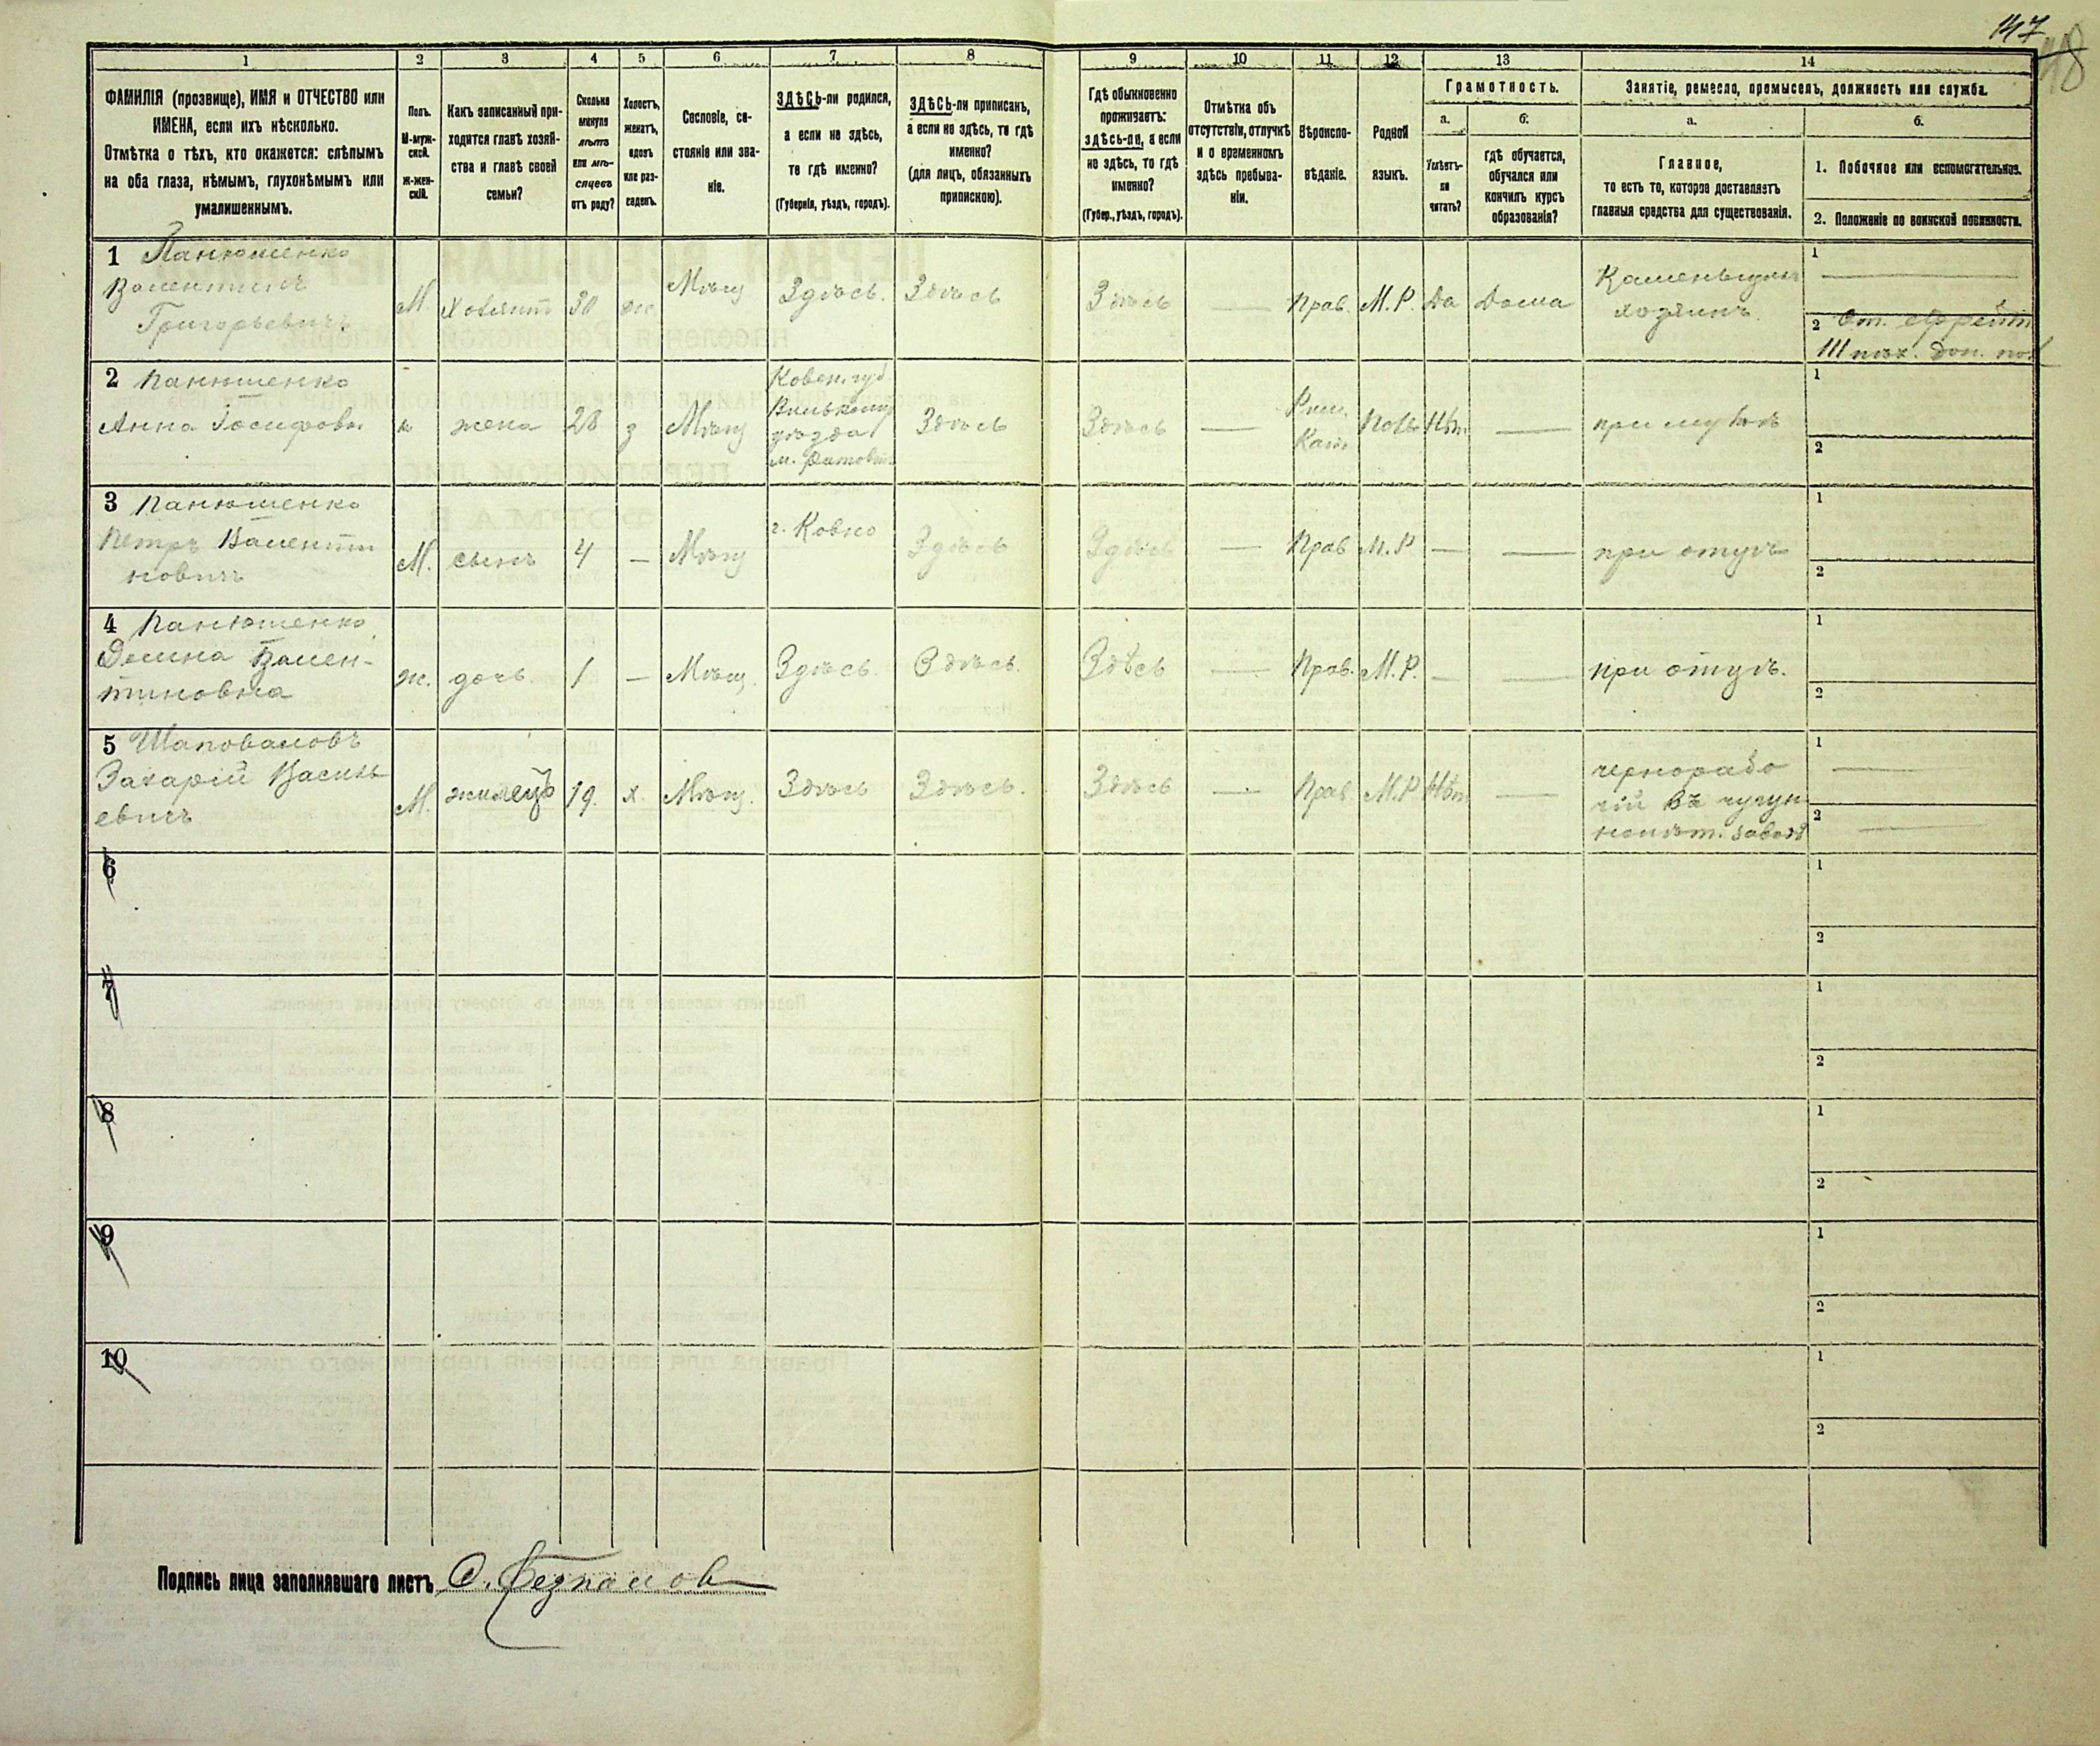 147
1 2 3 4 5 6 7 8 9 10 11 12 13 14
ФАМИЛІЯ (прозвище), ИМЯ и ОТЧЕСТВО или
ИМЕНА, если ихъ нѣсколько.
Отмѣтка о тѣхъ, кто окажется: слѣпымъ
на оба глаза, нѣмымъ, глухонѣмымъ или
умалишеннымъ.
Полъ.
М-муж-
ской.
ж-жен-
скій.
Какъ записанный при-
ходится главѣ хозяй-
ства и главѣ своей
семьи?
Сколько
минуло
лѣтъ
или мѣ-
сяцевъ
отъ роду?
Холостъ,
женатъ,
вдовъ
или раз-
веденъ.
Сословіе, со-
стояніе или зва-
ніе.
ЗДѢСЬ-ли родился,
а если не здѣсь,
то гдѣ именно?
(Губернія, уѣздъ, городъ).
ЗДѢСЬ-ли приписанъ,
а если не здѣсь, то гдѣ
именно?
(для лицъ, обязанныхъ
припискою).
Гдѣ обыкновенно
проживаетъ:
здѣсь-ли, а если
не здѣсь, то гдѣ
именно?
(Губер., уѣздъ, городъ).
Отмѣтка объ
отсутствіи, отлучкѣ
и о временномъ
здѣсь пребыва-
ніи.
Вѣроиспо-
вѣданіе.
Родной
языкъ.
Грамотность.
а.
Умѣетъ-
ли
читать?
б.
Гдѣ обучается,
обучался или
кончилъ курсъ
образованія?
Занятіе, ремесло, промыселъ, должность или служба.
а.
Главное,
то есть то, которое доставляетъ
главныя средства для существованія.
б.
1. Побочное или вспомогательное.
2. Положеніе по воинской повинности.
1 Панюшенко
Валентинъ
Григорьевичъ
М. Хозяинъ 30 ж. Мѣщ Здѣсь. Здѣсь Здѣсь — Прав. М.Р. Да Дома
Каменьщикъ
хозяинъ.
1 —
2 От. ефрейт
III пѣх.
2 Панюшенко
Анна Іосифовн
ж жена 28 з Мѣщ
Ковен. губ
Вилькомир
уѣзда
Здѣсь Здѣсь —
Рим.
Кат.
Поль Нѣт — при мужѣ
1
2
3 Панюшенко
Петръ Валенти
новичъ
М. сынъ 4 — Мѣщ г. Ковно Здѣсь Здѣсь — Прав М.Р — — при отцѣ
1
2
4 Панюшенко
Вален-
тиновна
ж. дочь. 1 — Мѣщ. Здѣсь. Здѣсь. Здѣсь — Прав. М.Р. — — при отцѣ.
1
2
5 Шаповаловъ
Захарій Василь
евичъ
М. жилецъ 19. х. Мѣщ. Здѣсь Здѣсь. Здѣсь — Прав. М.Р Нѣт —
чернорабо
чій въ чугун
нолит. заводѣ
1 —
2 —
6
1
2
7
1
2
8
1
2
9
1
2
10
1
2
Подпись лица заполнявшаго листъ